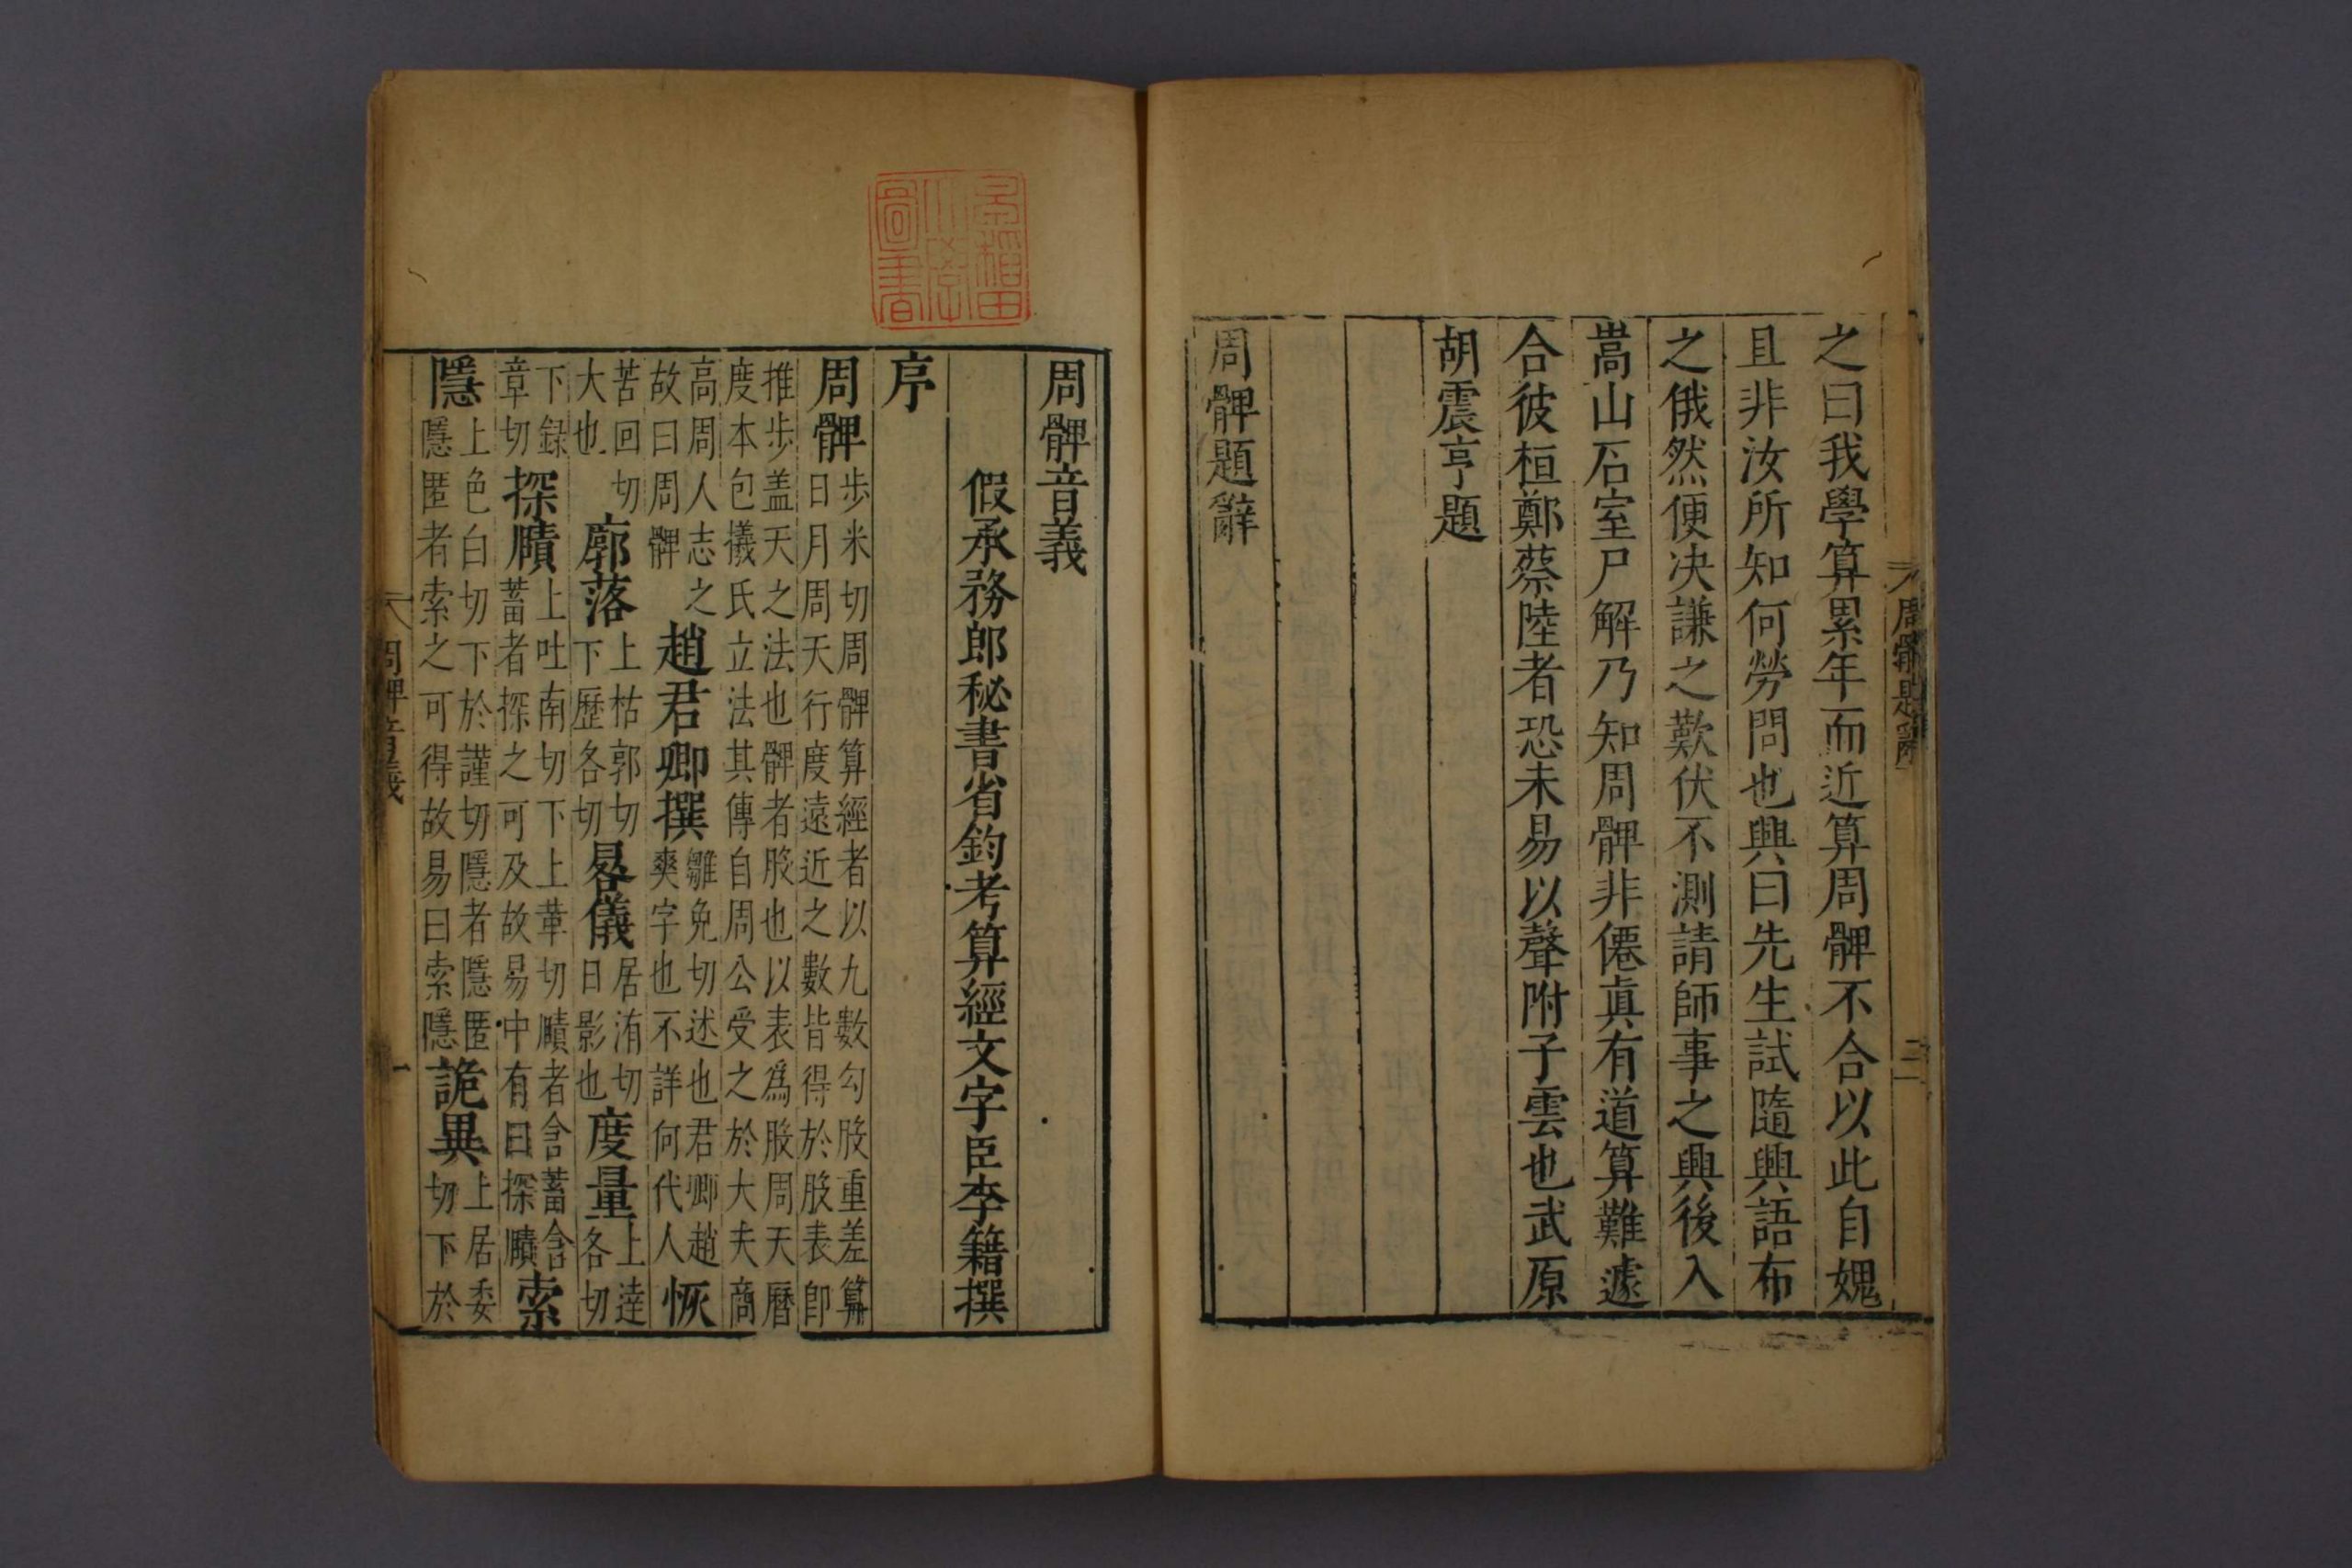 周髀題辭 二
之曰我學算累年而近算周髀不合以此自媿
且非汝所知何勞問也興曰先生試隨興語布
之俄然便決謙之歎伏不測請師事之興後入
嵩山石室尸解乃知周髀非僊真有道算難遽
合彼桓鄭蔡陸者恐未易以聲附子雲也武原
胡震亨題
周髀題辭
早稻田大學圖書
周髀音義
假承務郎秘書省鈞考算經文字臣李籍撰
序
周髀步米切周髀算經者以九數勾股重差算日月周天行度遠近之數皆得於股表即
推步盖天之法也髀者股也以表爲股周天曆度本包犧氏立法其傳自周公受之於大夫商
高周人志之故曰周髀趙君卿撰雛免切述也君卿趙爽字也不詳何代人恢
苦回切大也廓落上枯郭切下歷各切晷儀居洧切日影也度量上達各切
下録章切探賾上吐南切下上革切賾者含蓄含蓄者探之可及故易中有曰探賾索
隱上色白切下於謹切隱者隱匿隱匿者索之可得故易曰索隱詭異上居委切下於
周髀音義 一